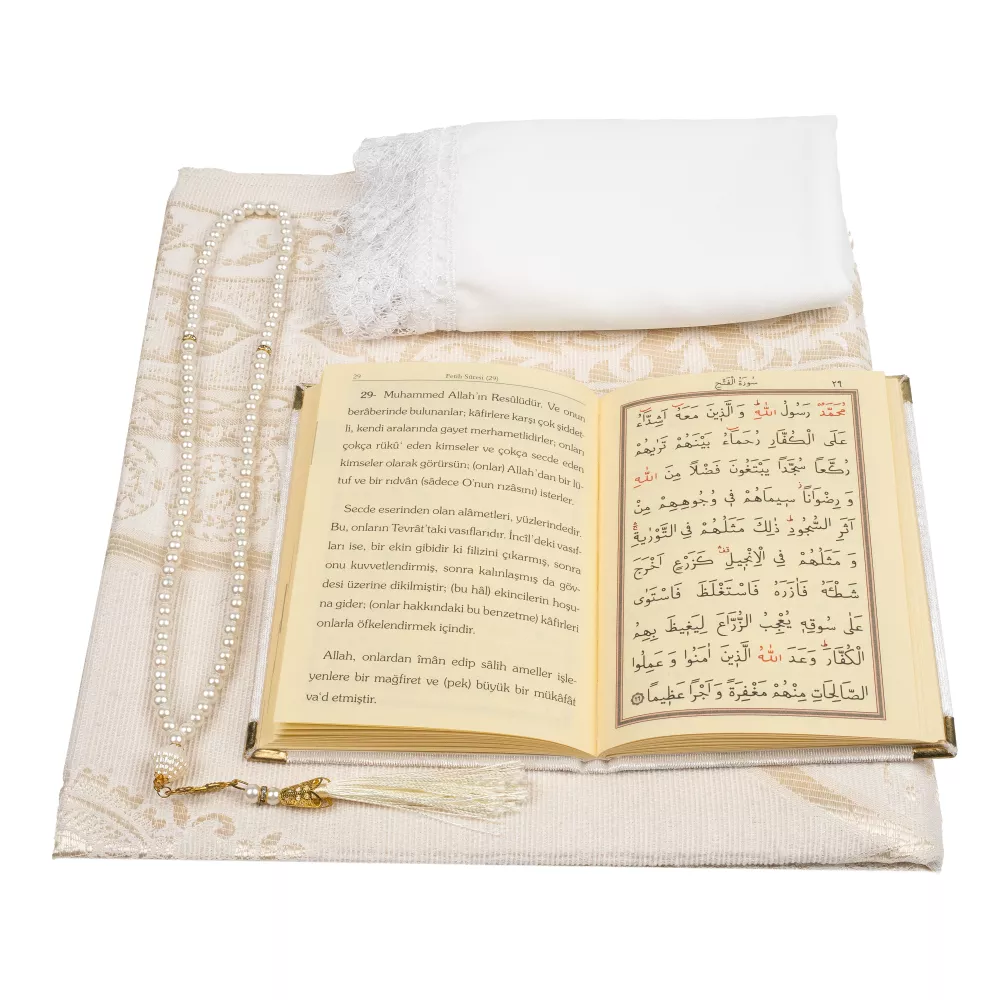 29
Fetih Sûresi (29)
29- Muhammed Allah'ın Resûlüdür. Ve onun
berâberinde bulunanlar; kâfirlere karşı çok şiddet-
li, kendi aralarında gayet merhametlidirler; onları
çokça rükû' eden kimseler ve çokça secde eden
kimseler olarak görürsün; (onlar) Allah'dan bir lü-
tuf ve bir rıdvân (sâdece O'nun rızâsını) isterler.
Secde eserinden olan alâmetleri, yüzlerindedir.
Bu, onların Tevrât'taki vasıflarıdır. İncîl'deki vasıf-
ları ise, bir ekin gibidir ki filizini çıkarmış, sonra
onu kuvvetlendirmiş, sonra kalınlaşmış da göv-
desi üzerine dikilmiştir; (bu hâl) ekincilerin hoşu-
na gider; (onlar hakkındaki bu benzetme) kâfirleri
onlarla öfkelendirmek içindir.
Allah, onlardan îmân edip sâlih ameller işle-
yenlere bir mağfiret ve (pek) büyük bir mükâfât
va'd etmiştir.
سُورَةُ الْفَتْحِ
٢٩
مُحَمَّدٌ رَسُولُ اللّٰهِ وَ الَّذ۪ينَ مَعَهُٓ اَشِدَّٓاءُ
عَلَى الْكُفَّارِ رُحَمَٓاءُ بَيْنَهُمْ تَرٰيهُمْ
رُكَّعًا سُجَّدًا يَبْتَغُونَ فَضْلًا مِنَ اللّٰهِ
وَ رِضْوَانًا س۪يمَاهُمْ ف۪ي وُجُوهِهِمْ مِنْ
اَثَرِ السُّجُودِ ذٰلِكَ مَثَلُهُمْ فِي التَّوْرٰيةِ
وَ مَثَلُهُمْ فِي الْاِنْج۪يلِ كَزَرْعٍ اَخْرَجَ
شَطْـَٔهُ فَاٰزَرَهُ فَاسْتَغْلَظَ فَاسْتَوٰى
عَلٰى سُوقِه۪ يُعْجِبُ الزُّرَّاعَ لِيَغ۪يظَ بِهِمُ
الْكُفَّارَ وَعَدَ اللّٰهُ الَّذ۪ينَ اٰمَنُوا وَ عَمِلُوا
الصَّالِحَاتِ مِنْهُمْ مَغْفِرَةً وَ اَجْرًا عَظ۪يمًا ﴿٢٩﴾